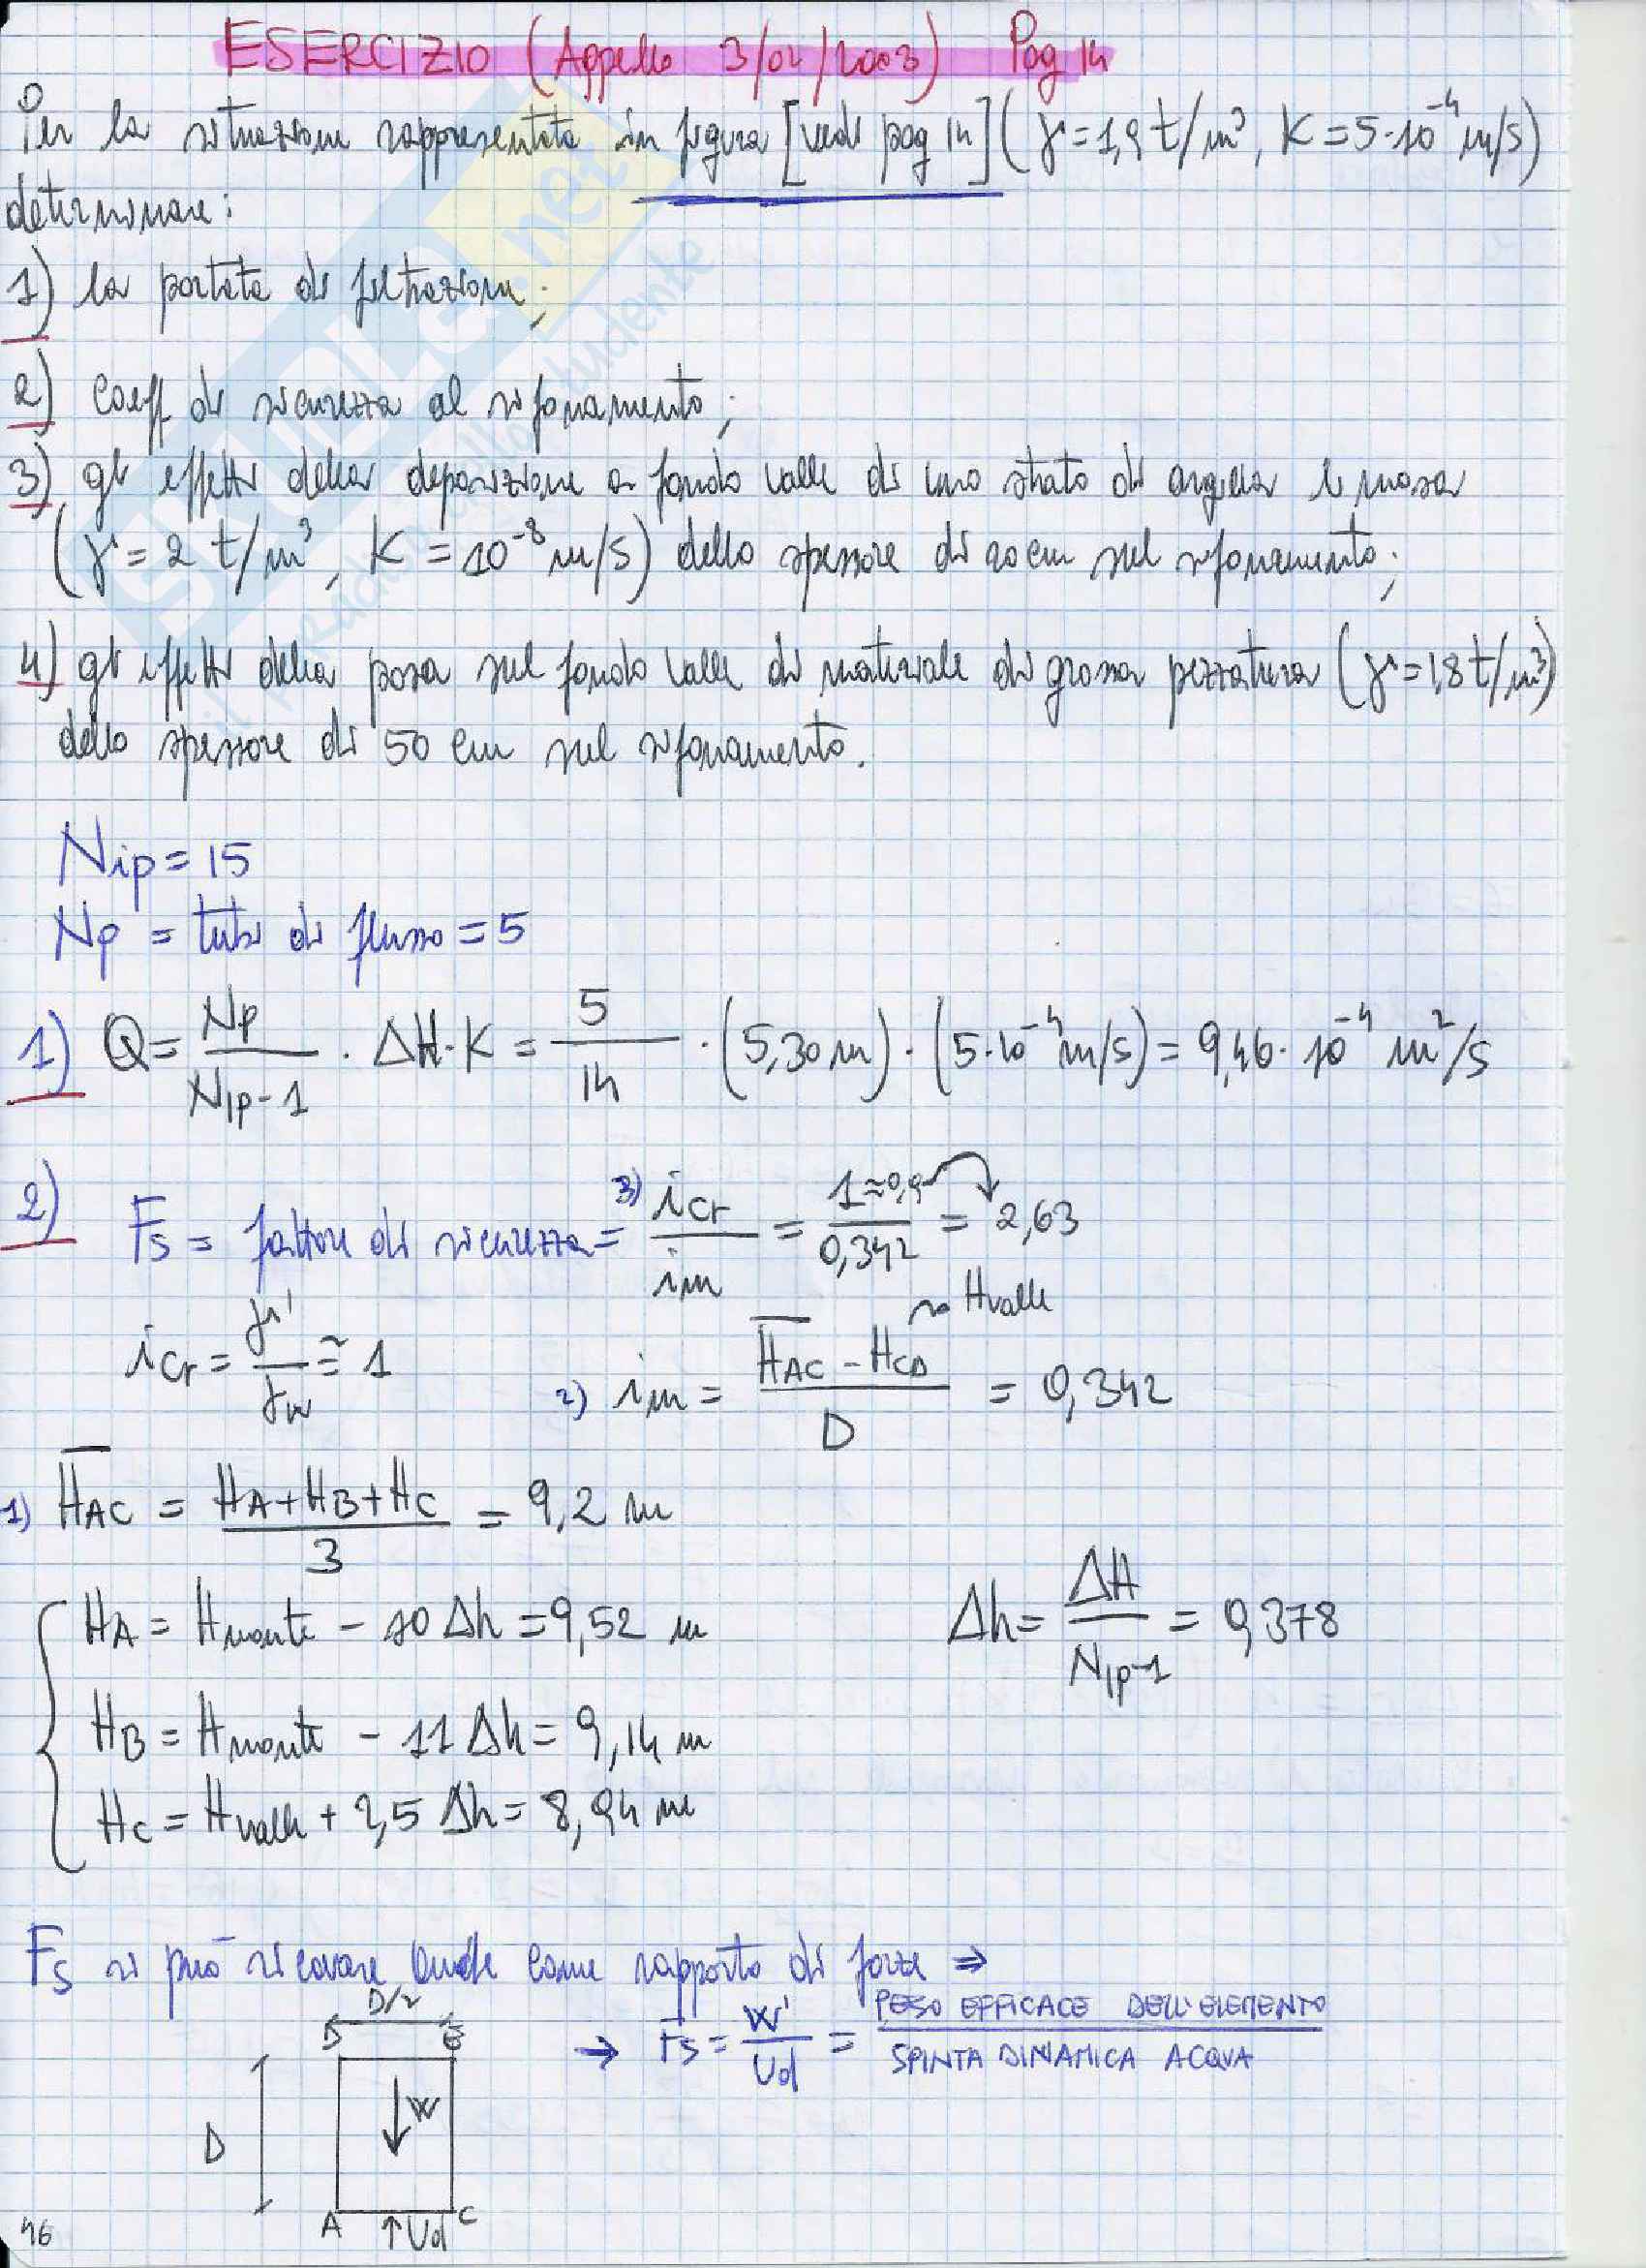 ESERCIZIO (Appello 3/02/2003) Pag 14
Per la situazione rappresentata in figura [vedi pag 14] (γ=1,9 t/m³, K=5·10⁻⁴ m/s)
determinare:
1) la portata di filtrazione;
2) Coeff di sicurezza al sifonamento;
3) gli effetti della deposizione a fondo valle di uno strato di argilla limosa
(γ = 2 t/m³, K = 10⁻⁸ m/s) dello spessore di 20 cm sul sifonamento;
4) gli effetti della posa sul fondo valle di materiale di grossa pezzatura (γ=1,8 t/m³)
dello spessore di 50 cm sul sifonamento.
Nip = 15
Np = tubi di flusso = 5
1) Q = Np / Nip-1 · ΔH·K = 5 / 14 · (5,30 m) · (5·10⁻⁴ m/s) = 9,46·10⁻⁴ m²/s
2) Fs = fattore di sicurezza = 3) icr / im = 1≈0,9 / 0,342 = 2,63
icr = γ' / γw ≅ 1
2) im = H̅AC - HCD / D = 0,342
→ Hvalle
1) H̅AC = HA+HB+HC / 3 = 9,2 m
HA = Hmonte - 10 Δh = 9,52 m
Δh = ΔH / Nip-1 = 0,378
HB = Hmonte - 11 Δh = 9,14 m
HC = Hvalle + 2,5 Δh = 8,94 m
Fs si può ricavare anche come rapporto di forze ⇒
→ Fs = W' / Ud = PESO EFFICACE DELL'ELEMENTO / SPINTA DINAMICA ACQUA
D/2
D
W
A
C
↑Ud
46
SKUOLA.net